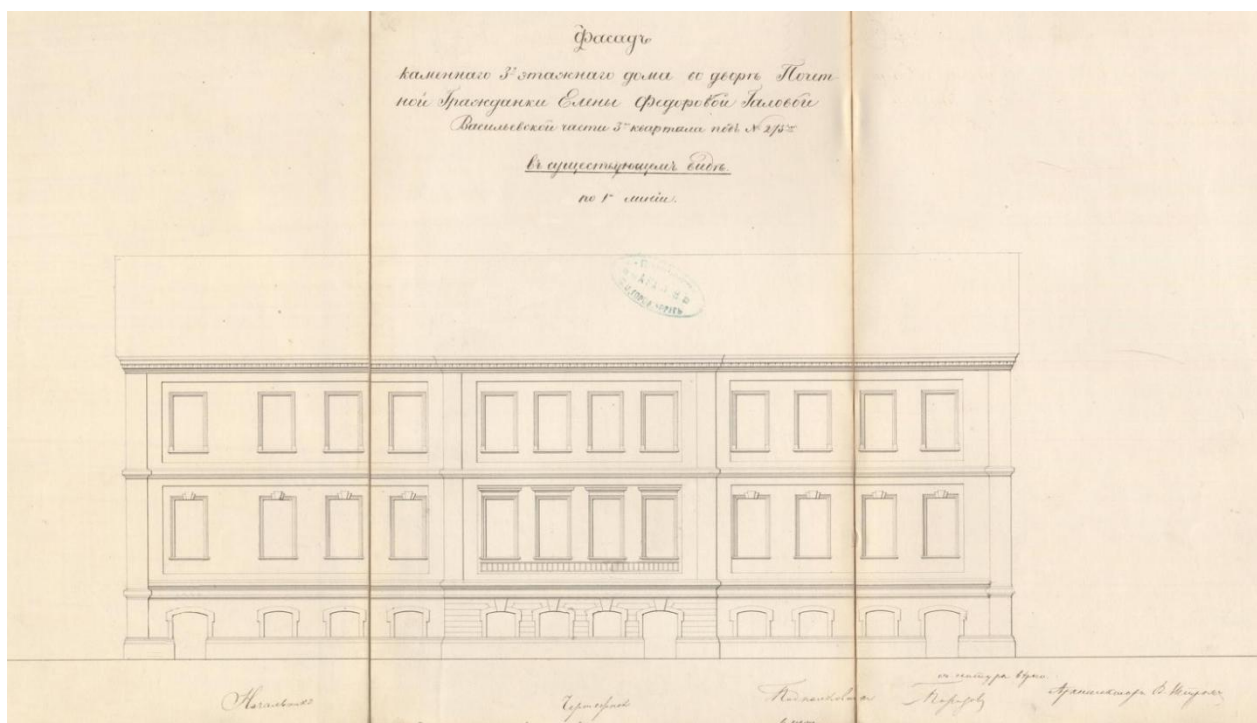 Фасадъ
каменнаго 3х этажнаго дома во дворѣ Почет
ной Гражданки Елены Федоровой
Васильевской части 3го квартала подъ №
въ существующемъ видѣ.
по 1й линіи.
Начальникъ
Чертежной
съ натуры вѣрно.
Архитекторъ В.